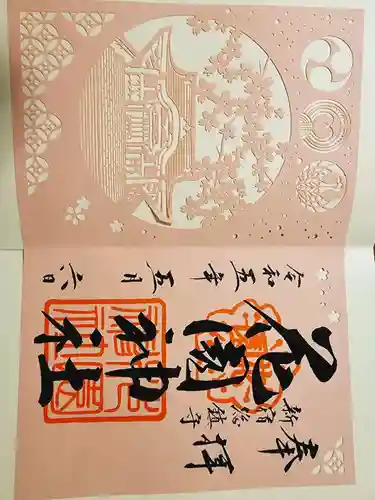 奉拝
新宿総鎮守
花園神社
令和五年五月六日